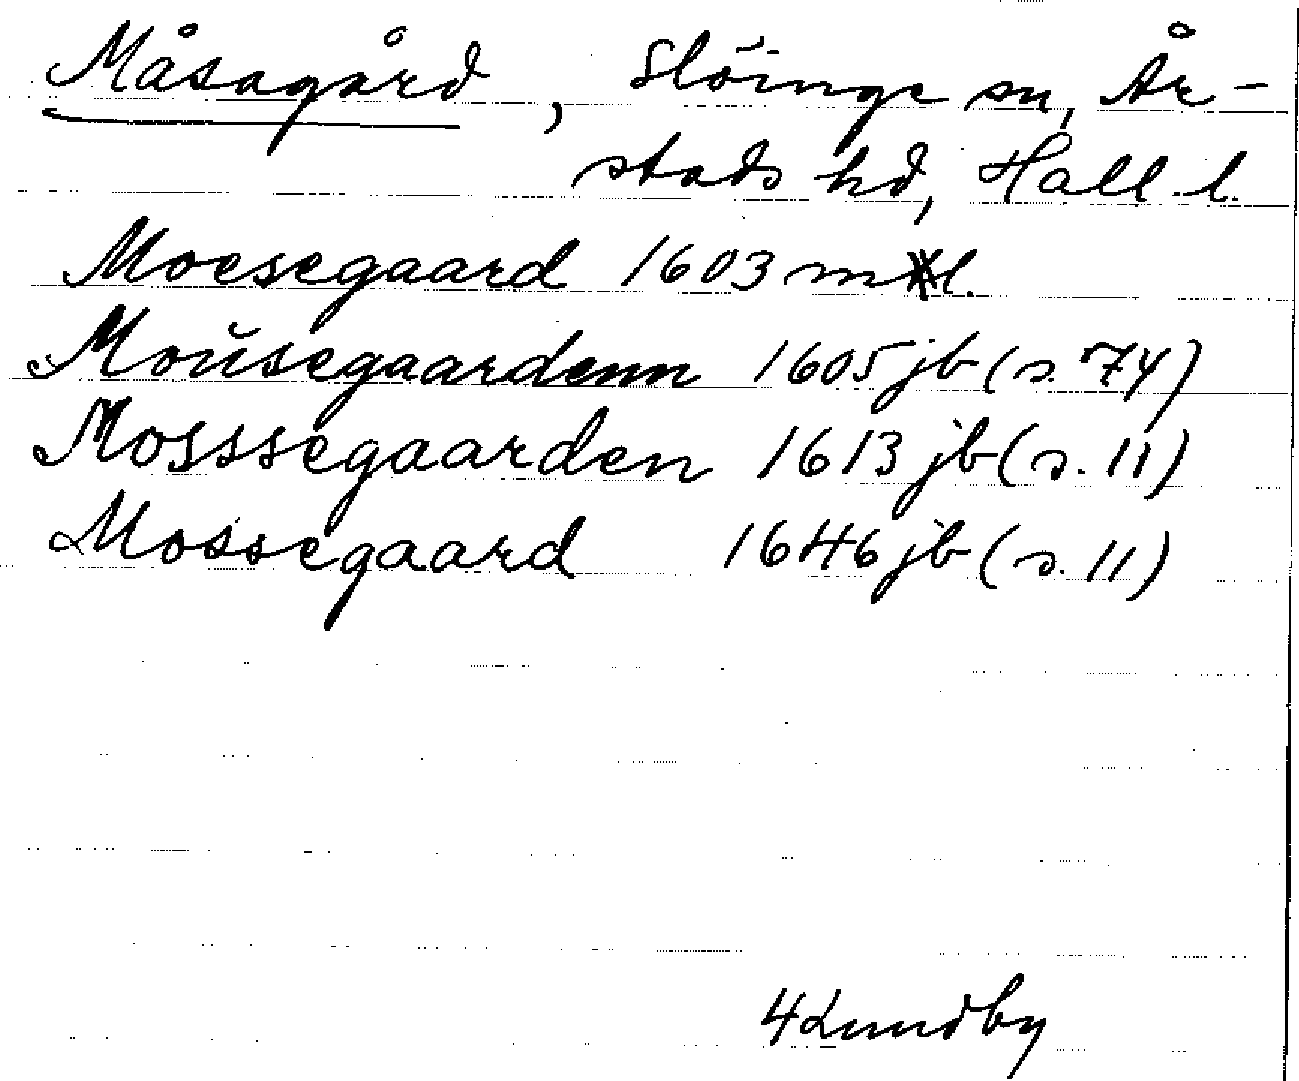 Måsagård, Slöinge sn, År-
stads hd, Hall. l.
Moesegaard 1603 ml.
Moŭsegaardenn 1605 jb (s. 74)
Mosssegaarden 1613 jb (s. 11)
Mossegaard 1646 jb (s. 11)
4 Lundby